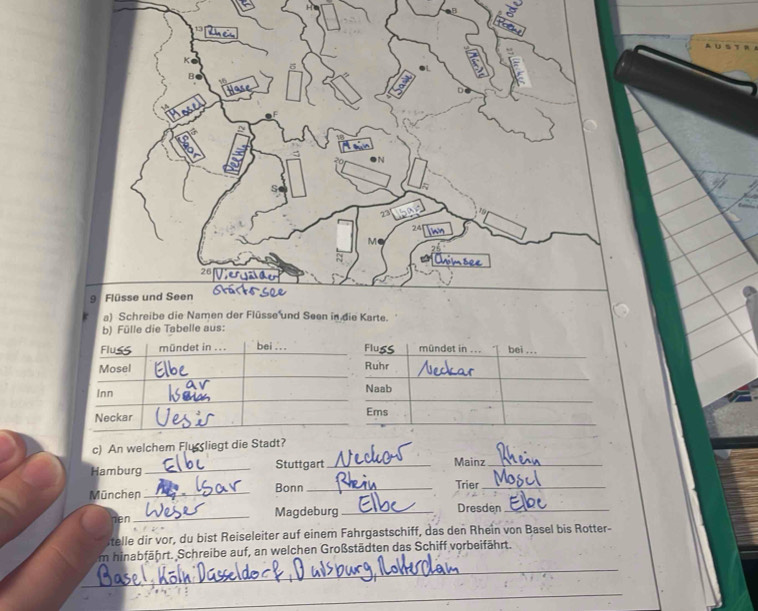 H
B
Oder
13 Rhein
K
B
Mosel
Saar
12
F
L
D
Saale
18 Main
20
N
17
S
21
23 Isar
19
24 Inn
M
22
25
Chimsee
26 Vierwalder
stättersee
AUSTR
9 Flüsse und Seen
a) Schreibe die Namen der Flüsse und Seen in die Karte.
b) Fülle die Tabelle aus:
Fluss mündet in ... bei ... Fluss mündet in ... bei ...
Mosel Elbe Ruhr Neckar
Inn Isar Naab
Neckar Ems
c) An welchem Fluss liegt die Stadt?
Hamburg Elbe Stuttgart Neckar Mainz Rhein
München Isar Bonn Rhein Trier Mosel
men Weser Magdeburg Elbe Dresden Elbe
telle dir vor, du bist Reiseleiter auf einem Fahrgastschiff, das den Rhein von Basel bis Rotter-
m hinabfährt. Schreibe auf, an welchen Großstädten das Schiff vorbeifährt.
Basel, Köln, Düsseldorf, Duisburg, Rotterdam